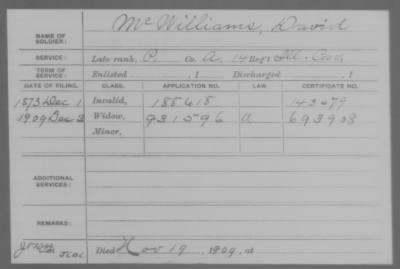 McWilliams, David
NAME OF SOLDIER:
SERVICE: Late rank, P. Co. A, 14 Reg't Ill. Cav.
TERM OF SERVICE: Enlisted , 1 Discharged , 1
DATE OF FILING. CLASS. APPLICATION NO. LAW. CERTIFICATE NO.
1873 Dec 1 Invalid, 188618 143479
1909 Dec 3 Widow, 931596 a 693908
Minor,
ADDITIONAL SERVICES:
REMARKS:
Died Nov 19, 1909, at